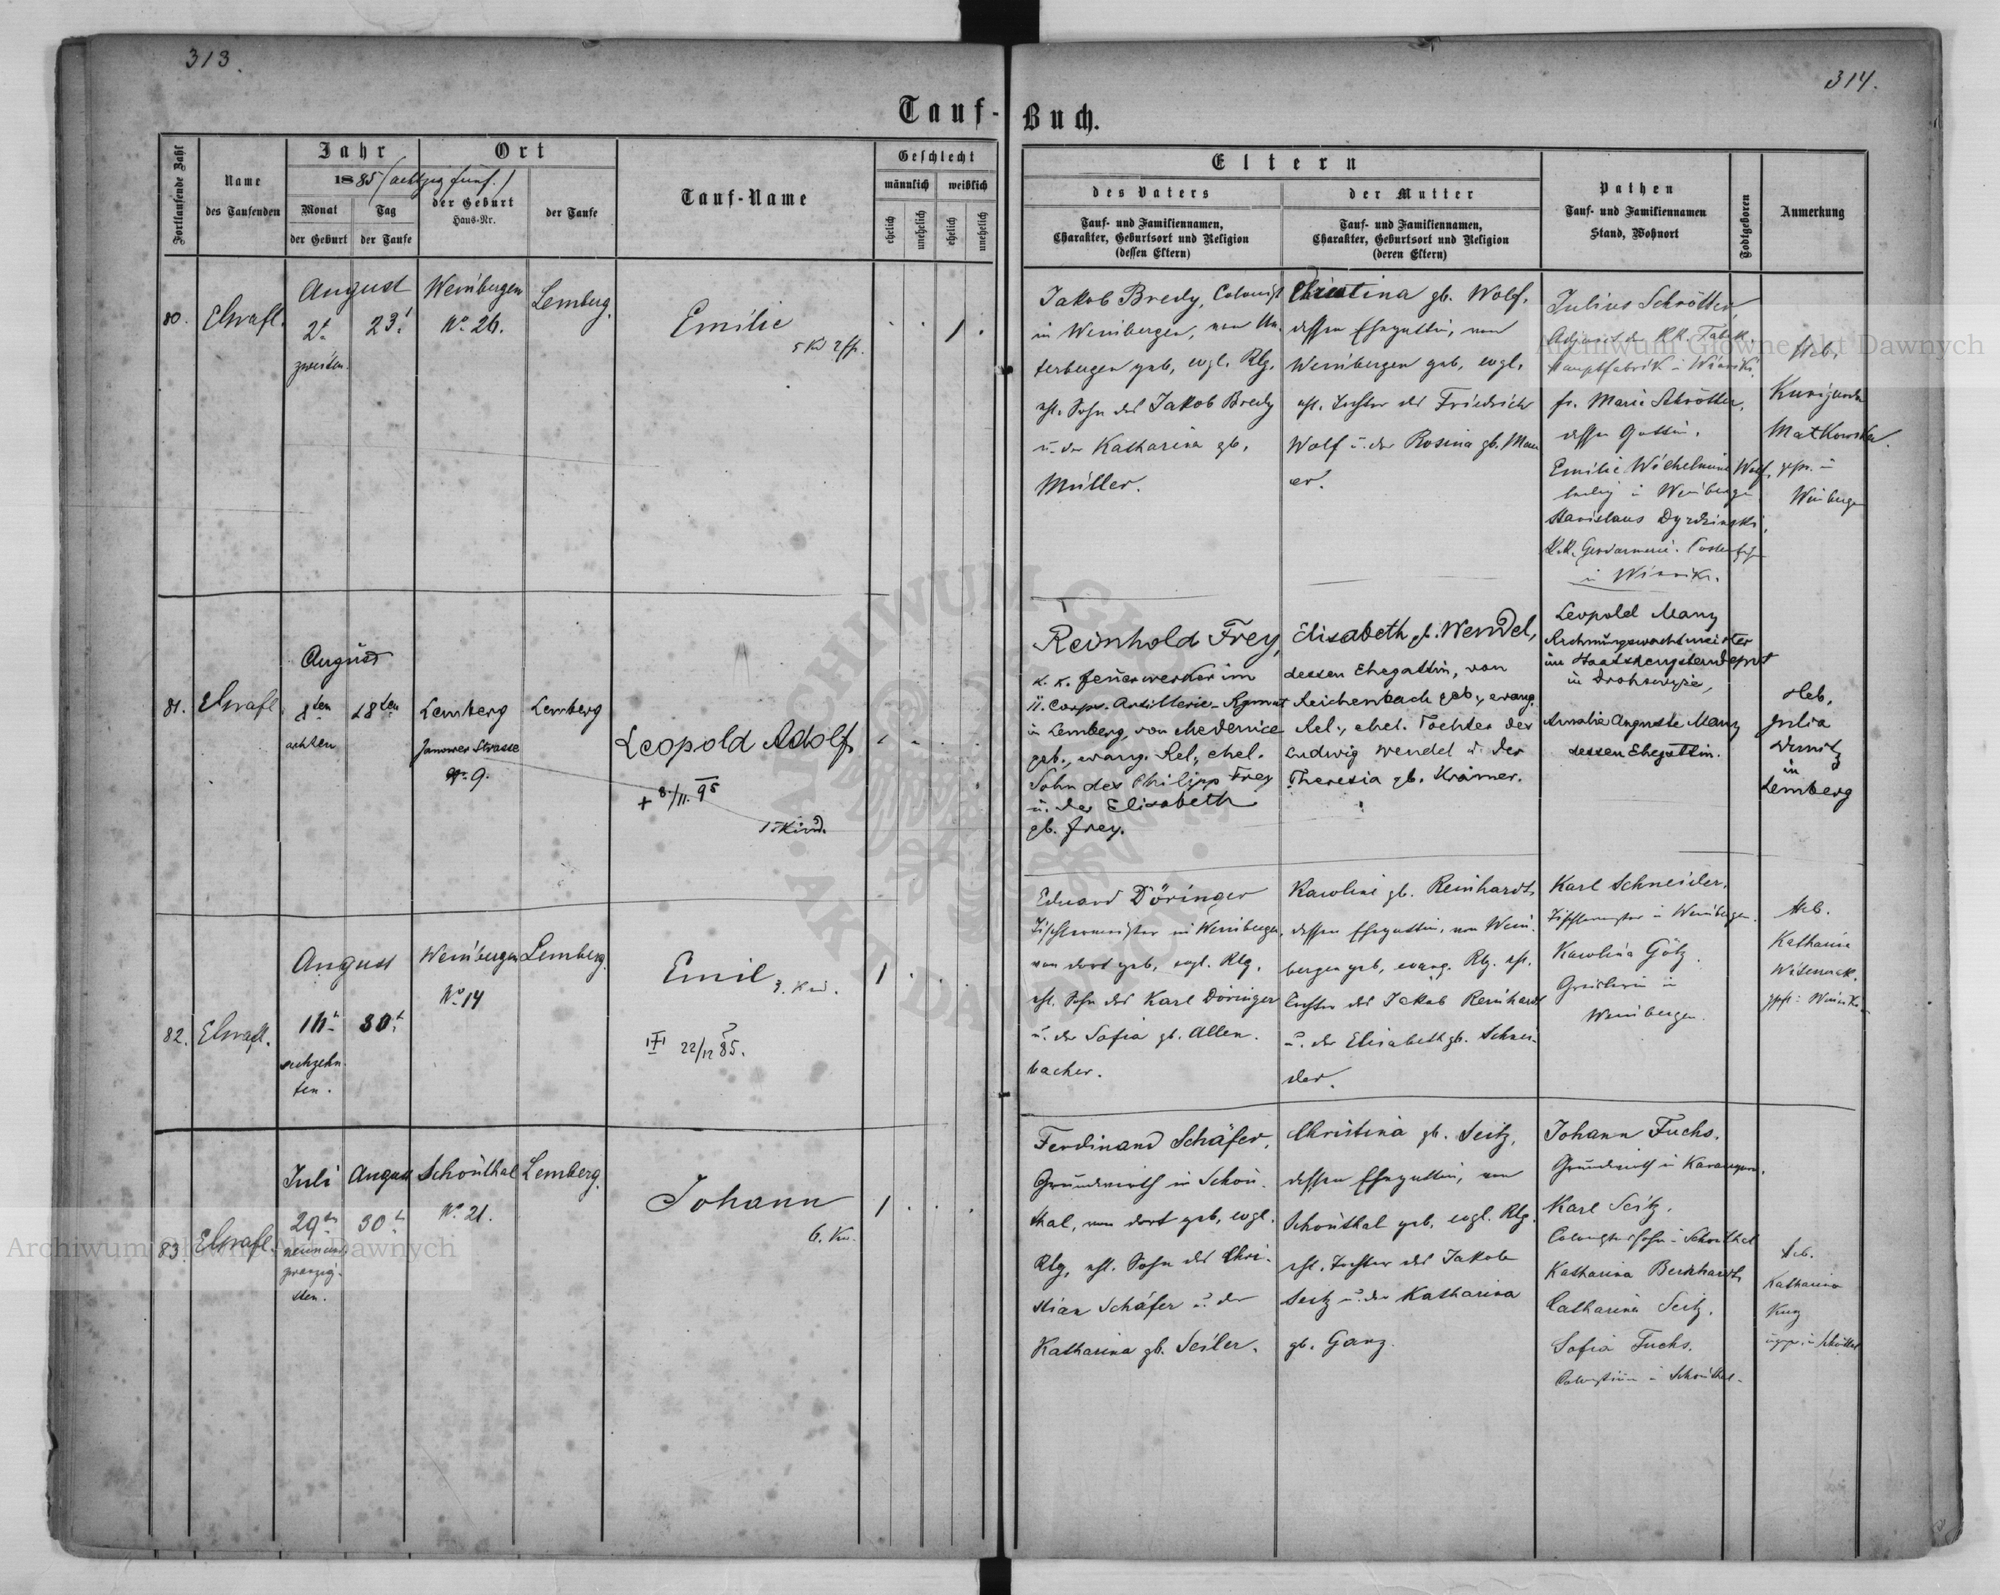 313.
314.
Tauf-
Buch.
Fortlaufende Zahl
Name
des Taufenden
Jahr
1885 (achtzig fünf.)
Monat
Tag
der Geburt
der Taufe
Ort
der Geburt
Haus-Nr.
der Taufe
Tauf-Name
Geschlecht
männlich
weiblich
ehelich
unehelich
ehelich
unehelich
Eltern
des Vaters
Tauf- und Familiennamen,
Charakter, Geburtsort und Religion
(dessen Eltern)
der Mutter
Tauf- und Familiennamen,
Charakter, Geburtsort und Religion
(deren Eltern)
Pathen
Tauf- und Familiennamen
Stand, Wohnort
Todtgeboren
Anmerkung
80.
August
2t
zweiten
23t
Weinbergen
No. 26.
Lemberg.
Emilie
Jakob Bredy, Colonist
in Weinbergen, von Un-
terbergen geb, evgl. Rlg.
ehl. Sohn des Jakob Bredy
u. der Katharina gb.
Müller.
Christina gb. Wolf.
dessen Ehegattin, von
Weinbergen geb, evgl.
ehl. Tochter des Friedrich
Wolf u. der Rosina gb. Mau
er.
Julius Schrötter,
fr. Marie Schrötter,
dessen Gattin.
Emilie Wilhelmine Wolf,
ledig in Weinbergen
Stanislaus
k.k. Gendarmerie
in Winniki.
Heb.
Kunigunda
Matkowska.
gepr. in
Weinbergen
81.
August
8ten
achten
18ten
Lemberg
Janower Strasse
No. 9.
Lemberg
Leopold Adolf
+ 8/11. 95
1. Kind.
Reinhold Frey,
k. k. Feuerwerker im
11. Corps. Artillerie-Rgmnt
in Lemberg, von Medenice
geb., evang. Rel., ehel.
Sohn des Philipp Frey
u. der Elisabeth
gb. Frey.
Elisabeth gb. Wendel,
dessen Ehegattin, von
Reichenbach geb., evang.
Rel., ehel. Tochter der
Ludwig Wendel u. der
Theresia gb. Krämer.
Leopold Manz
Rechnungswachtmeister
im Staatshengstendepot
in Drohowyze,
Amalie Auguste Manz
dessen Ehegattin.
Heb.
Julia
in
Lemberg
82.
August
16t
sechzehn-
ten.
30t
Weinbergen
No 14
Lemberg.
Emil
3. Kind.
22/12 85.
Eduard Döringer
Tischlermeister in Weinbergen,
von dort geb, evgl. Rlg.
ehl. Sohn des Karl Döringer
u. der Sofia gb. Allen-
bacher.
Karoline gb. Reinhardt,
dessen Ehegattin, von Wein-
bergen geb, evang. Rlg. ehl.
Tochter des Jakob Reinhardt
u. der Elisabeth gb. Schnei-
der.
Karl Schneider,
Tischlermeister in Weinbergen.
Karolina Götz.
in
Weinbergen.
Heb.
Katharina
gepr. in Winniki
83.
Juli
29ten
neunund-
zwanzig-
sten.
August
30t
Schönthal
No 21.
Lemberg.
Johann
6. Kind.
Ferdinand Schäfer,
Grundwirth in Schön-
thal, von dort geb, evgl.
Rlg, ehl. Sohn des Chri-
stian Schäfer u. der
Katharina gb. Seiler.
Christina gb. Seitz,
dessen Ehegattin, von
Schönthal geb. evgl. Rlg.
ehl. Tochter des Jakob
Seitz u. der Katharina
gb. Ganz.
Johann Fuchs.
Karl Seitz.
Colonistensohn in Schönthal
Katharina Bernhardt,
Catharina Seitz.
Sofia Fuchs.
Colonistin in Schönthal.
Heb.
Katharina
Kunz
ungepr. in Schönthal
Archiwum Główne Akt Dawnych
Archiwum Główne Akt Dawnych